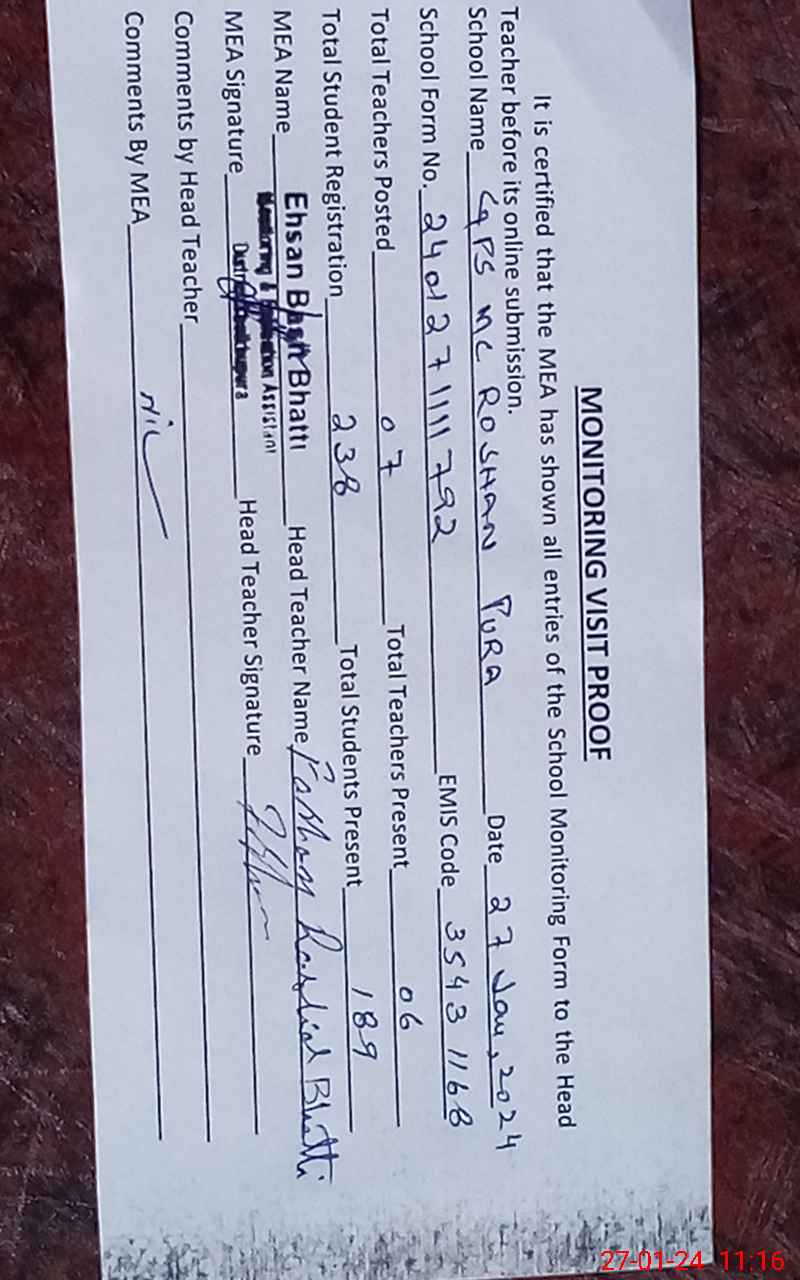 MONITORING VISIT PROOF
It is certified that the MEA has shown all entries of the School Monitoring Form to the Head
Teacher before its online submission.
School Name GPS MC ROSHAN PURA Date 27 Jan, 2024
School Form No. 2401271111792 EMIS Code 35431168
Total Teachers Posted 07 Total Teachers Present 06
Total Student Registration 238 Total Students Present 189
MEA Name Ehsan Bhatti Head Teacher Name Rashid Bhatti
Monitoring & Assistant
MEA Signature Head Teacher Signature
Comments by Head Teacher
Comments By MEA Nil
27-01-24 11:16